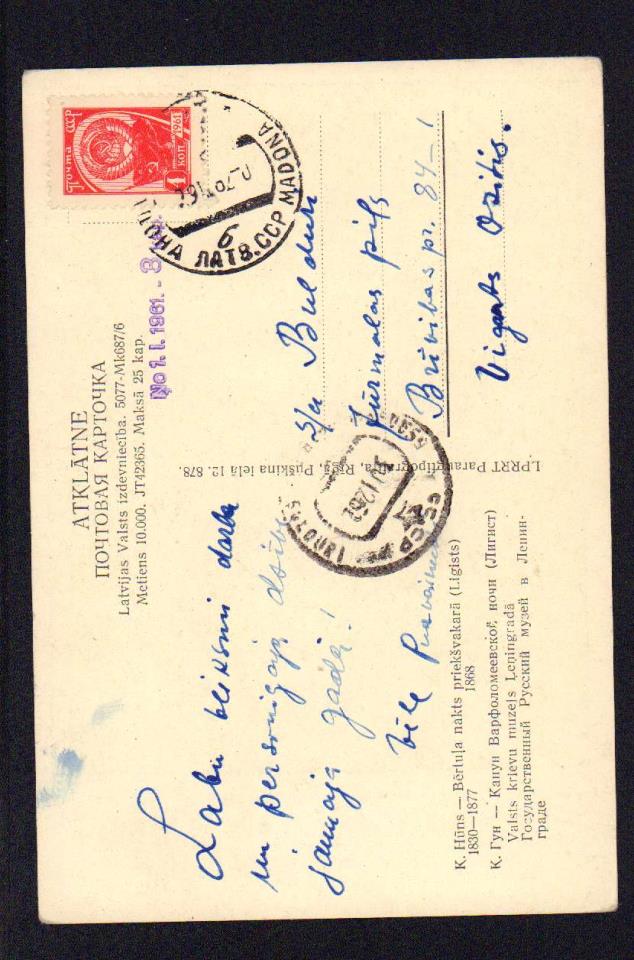 ATKLĀTNE
ПОЧТОВАЯ КАРТОЧКА
Latvijas Valsts izdevniecība. 5077-Mk687/6
Metiens 10.000. JT42365. Maksā 25 kap.
No 1. I. 1961. - 3 kap.
Почта СССР
1961
4 коп
ЛАТВ. ССР MADONA
б
Labu veiksmi darbā
un personīgajā dzīvē
jaunajā gadā!
vēlē
Bulduri
Jūrmalas pils
Brīvības pr. 84-1
Vigants Ositis.
LPRRT Paraugtipogrāfija, Rīgā, Puškina ielā 12. 878.
K. Hūns — Bērtuļa nakts priekšvakarā (Ligists)
1830—1877 1868
К. Гун — Канун Варфоломеевской ночи (Лигист)
Valsts krievu muzejs Ļeņingradā
Государственный Русский музей в Ленин-
граде